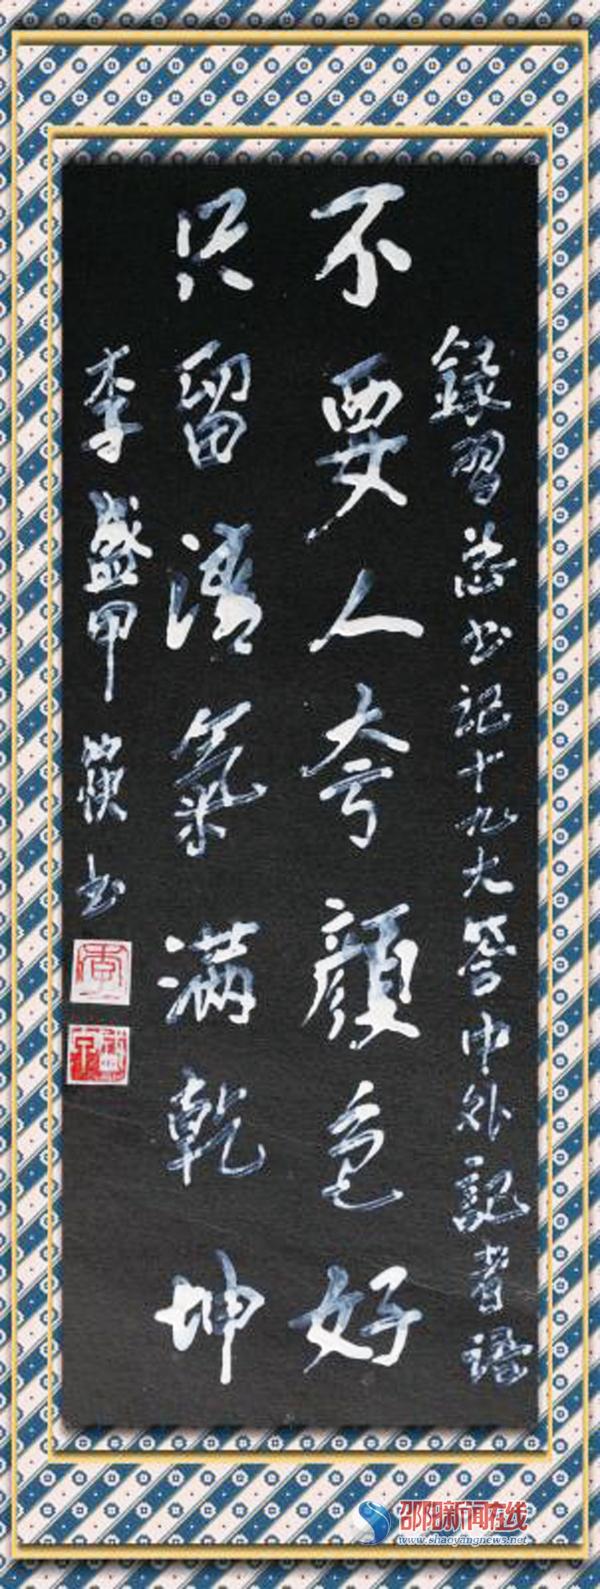 錄習总书记十九大答中外記者語
不要人夸顔色好
只留清氣滿乾坤
李盛甲 敬书
邵阳新闻在线
www.shaoyangnews.net